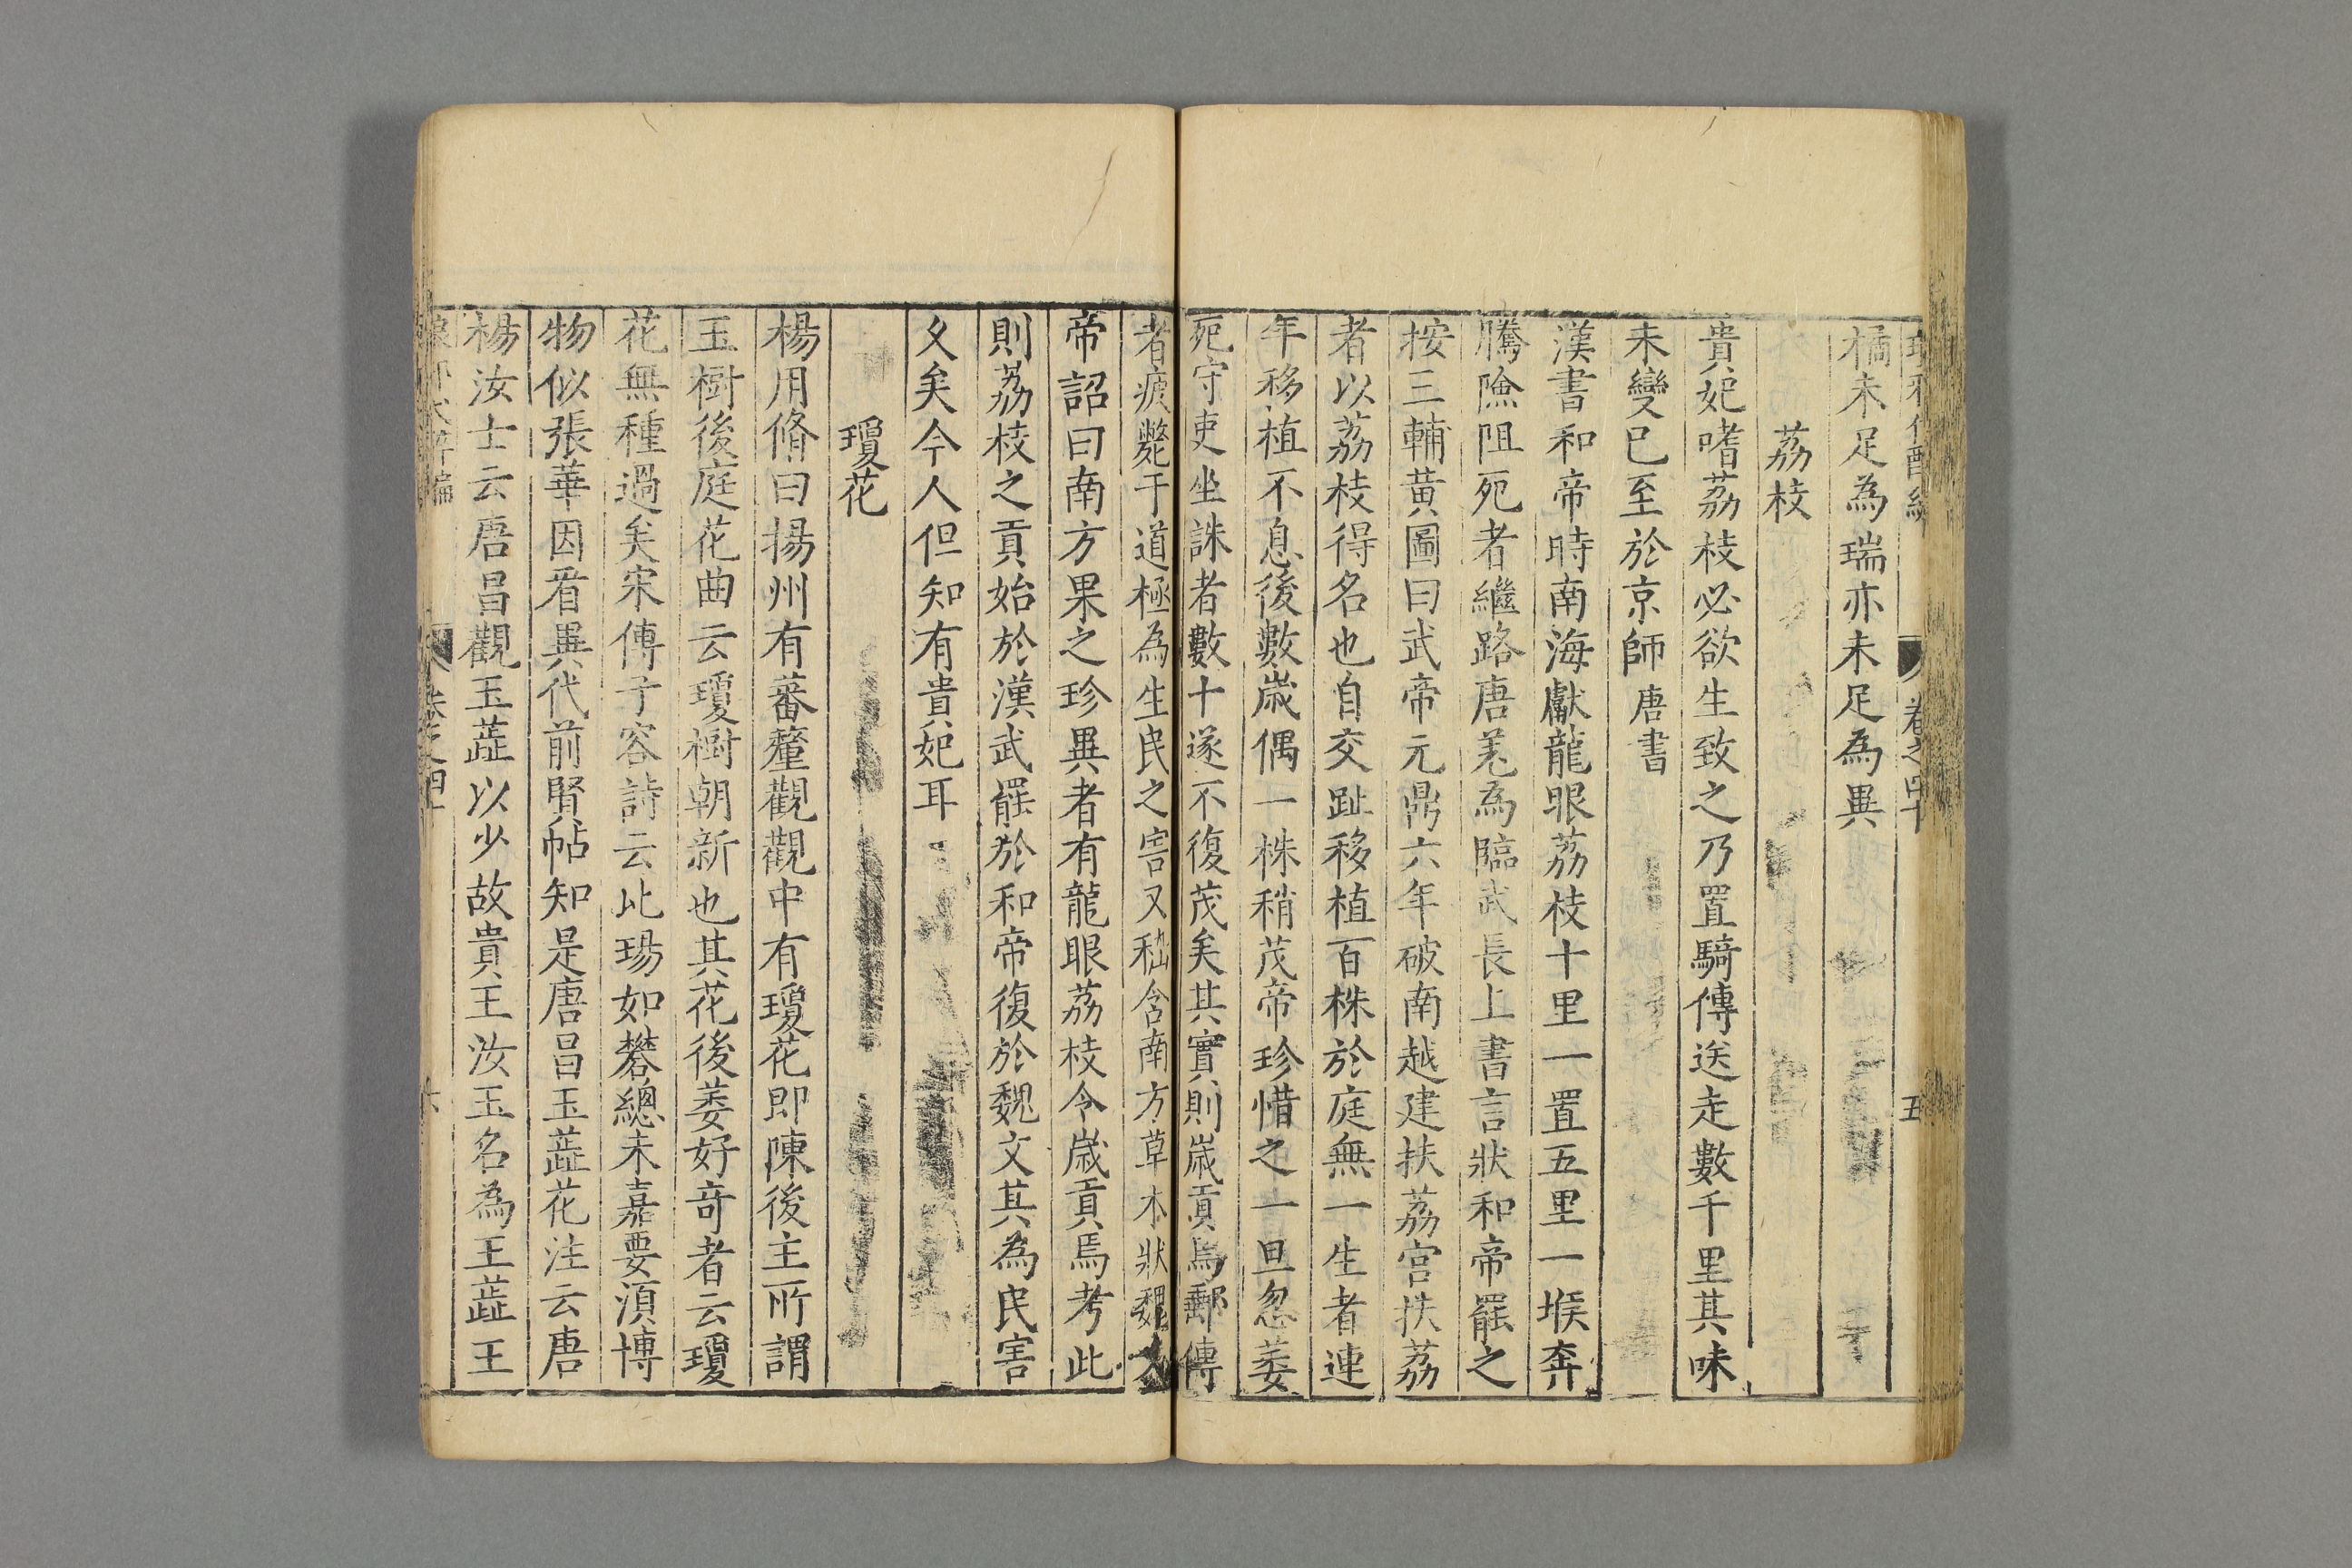 卷之四十
五
橘未足為瑞亦未足為異
荔枝
貴妃嗜荔枝必欲生致之乃置騎傳送走數千里其味
未變已至於京師唐書
漢書和帝時南海獻龍眼荔枝十里一置五里一堠奔
騰險阻死者繼路唐羌為臨武長上書言狀和帝罷之
按三輔黃圖曰武帝元鼎六年破南越建扶荔宮扶荔
者以荔枝得名也自交趾移植百株於庭無一生者連
年移植不息後數歲偶一株稍茂帝珍惜之一旦忽萎
死守吏坐誅者數十遂不復茂矣其實則歲貢焉郵傳
者疲斃于道極為生民之害又嵇含南方草木狀魏文
帝詔曰南方果之珍異者有龍眼荔枝令歲貢焉考此
則荔枝之貢始於漢武罷於和帝復於魏文其為民害
久矣今人但知有貴妃耳
瓊花
楊用脩曰揚州有蕃釐觀觀中有瓊花即陳後主所謂
玉樹後庭花曲云瓊樹朝新也其花後萎好奇者云瓊
花無種過矣宋傅子容詩云比瑒如礬總未嘉要須博
物似張華因看異代前賢帖知是唐昌玉蘂花注云唐
楊汝士云唐昌觀玉蘂以少故貴王汝玉名為玉蘂王
卷之四十
六